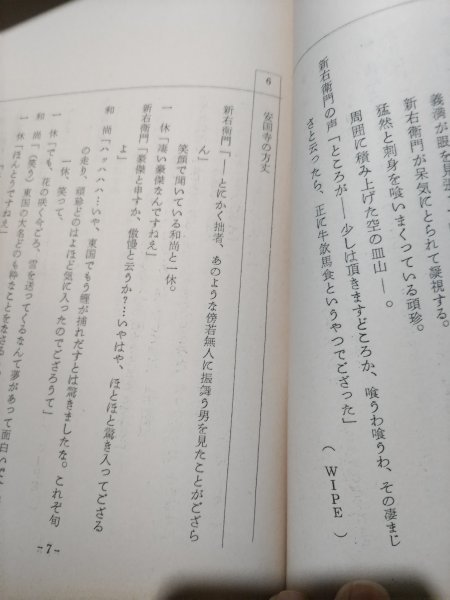 義満が眼を
新右衛門が呆気にとられて凝視する。
猛然と刺身を喰いまくっている頑珍。
周囲に積み上げた空の皿山――。
新右衛門の声「ところが――少しは頂きますどころか、喰うわ喰うわ、その凄まじ
さと云ったら、正に牛飲馬食というやつでござった」
(WIPE)
6 安国寺の方丈
新右衛門「――とにかく拙者、あのような傍若無人に振舞う男を見たことがござら
ん」
笑顔で聞いている和尚と一休。
一休「凄い豪傑なんですねえ」
新右衛門「豪傑と申すか、傲慢と云うか?…いやはや、ほとほと驚き入ってござる
よ」
和尚「ハッハハハ…いや、東国でもう鰹が捕れだすとは驚きましたな。これぞ旬
の走り、頑珍どのはよほど気に入ったのでござろうて」
一休、笑って、
一休「でも、花の咲く今ごろ、雪を送ってくるなんて夢があって面白い
和尚「(笑う)東国の大名どのも粋なことをなさる
一休「ほんとうですねえ」
-7-